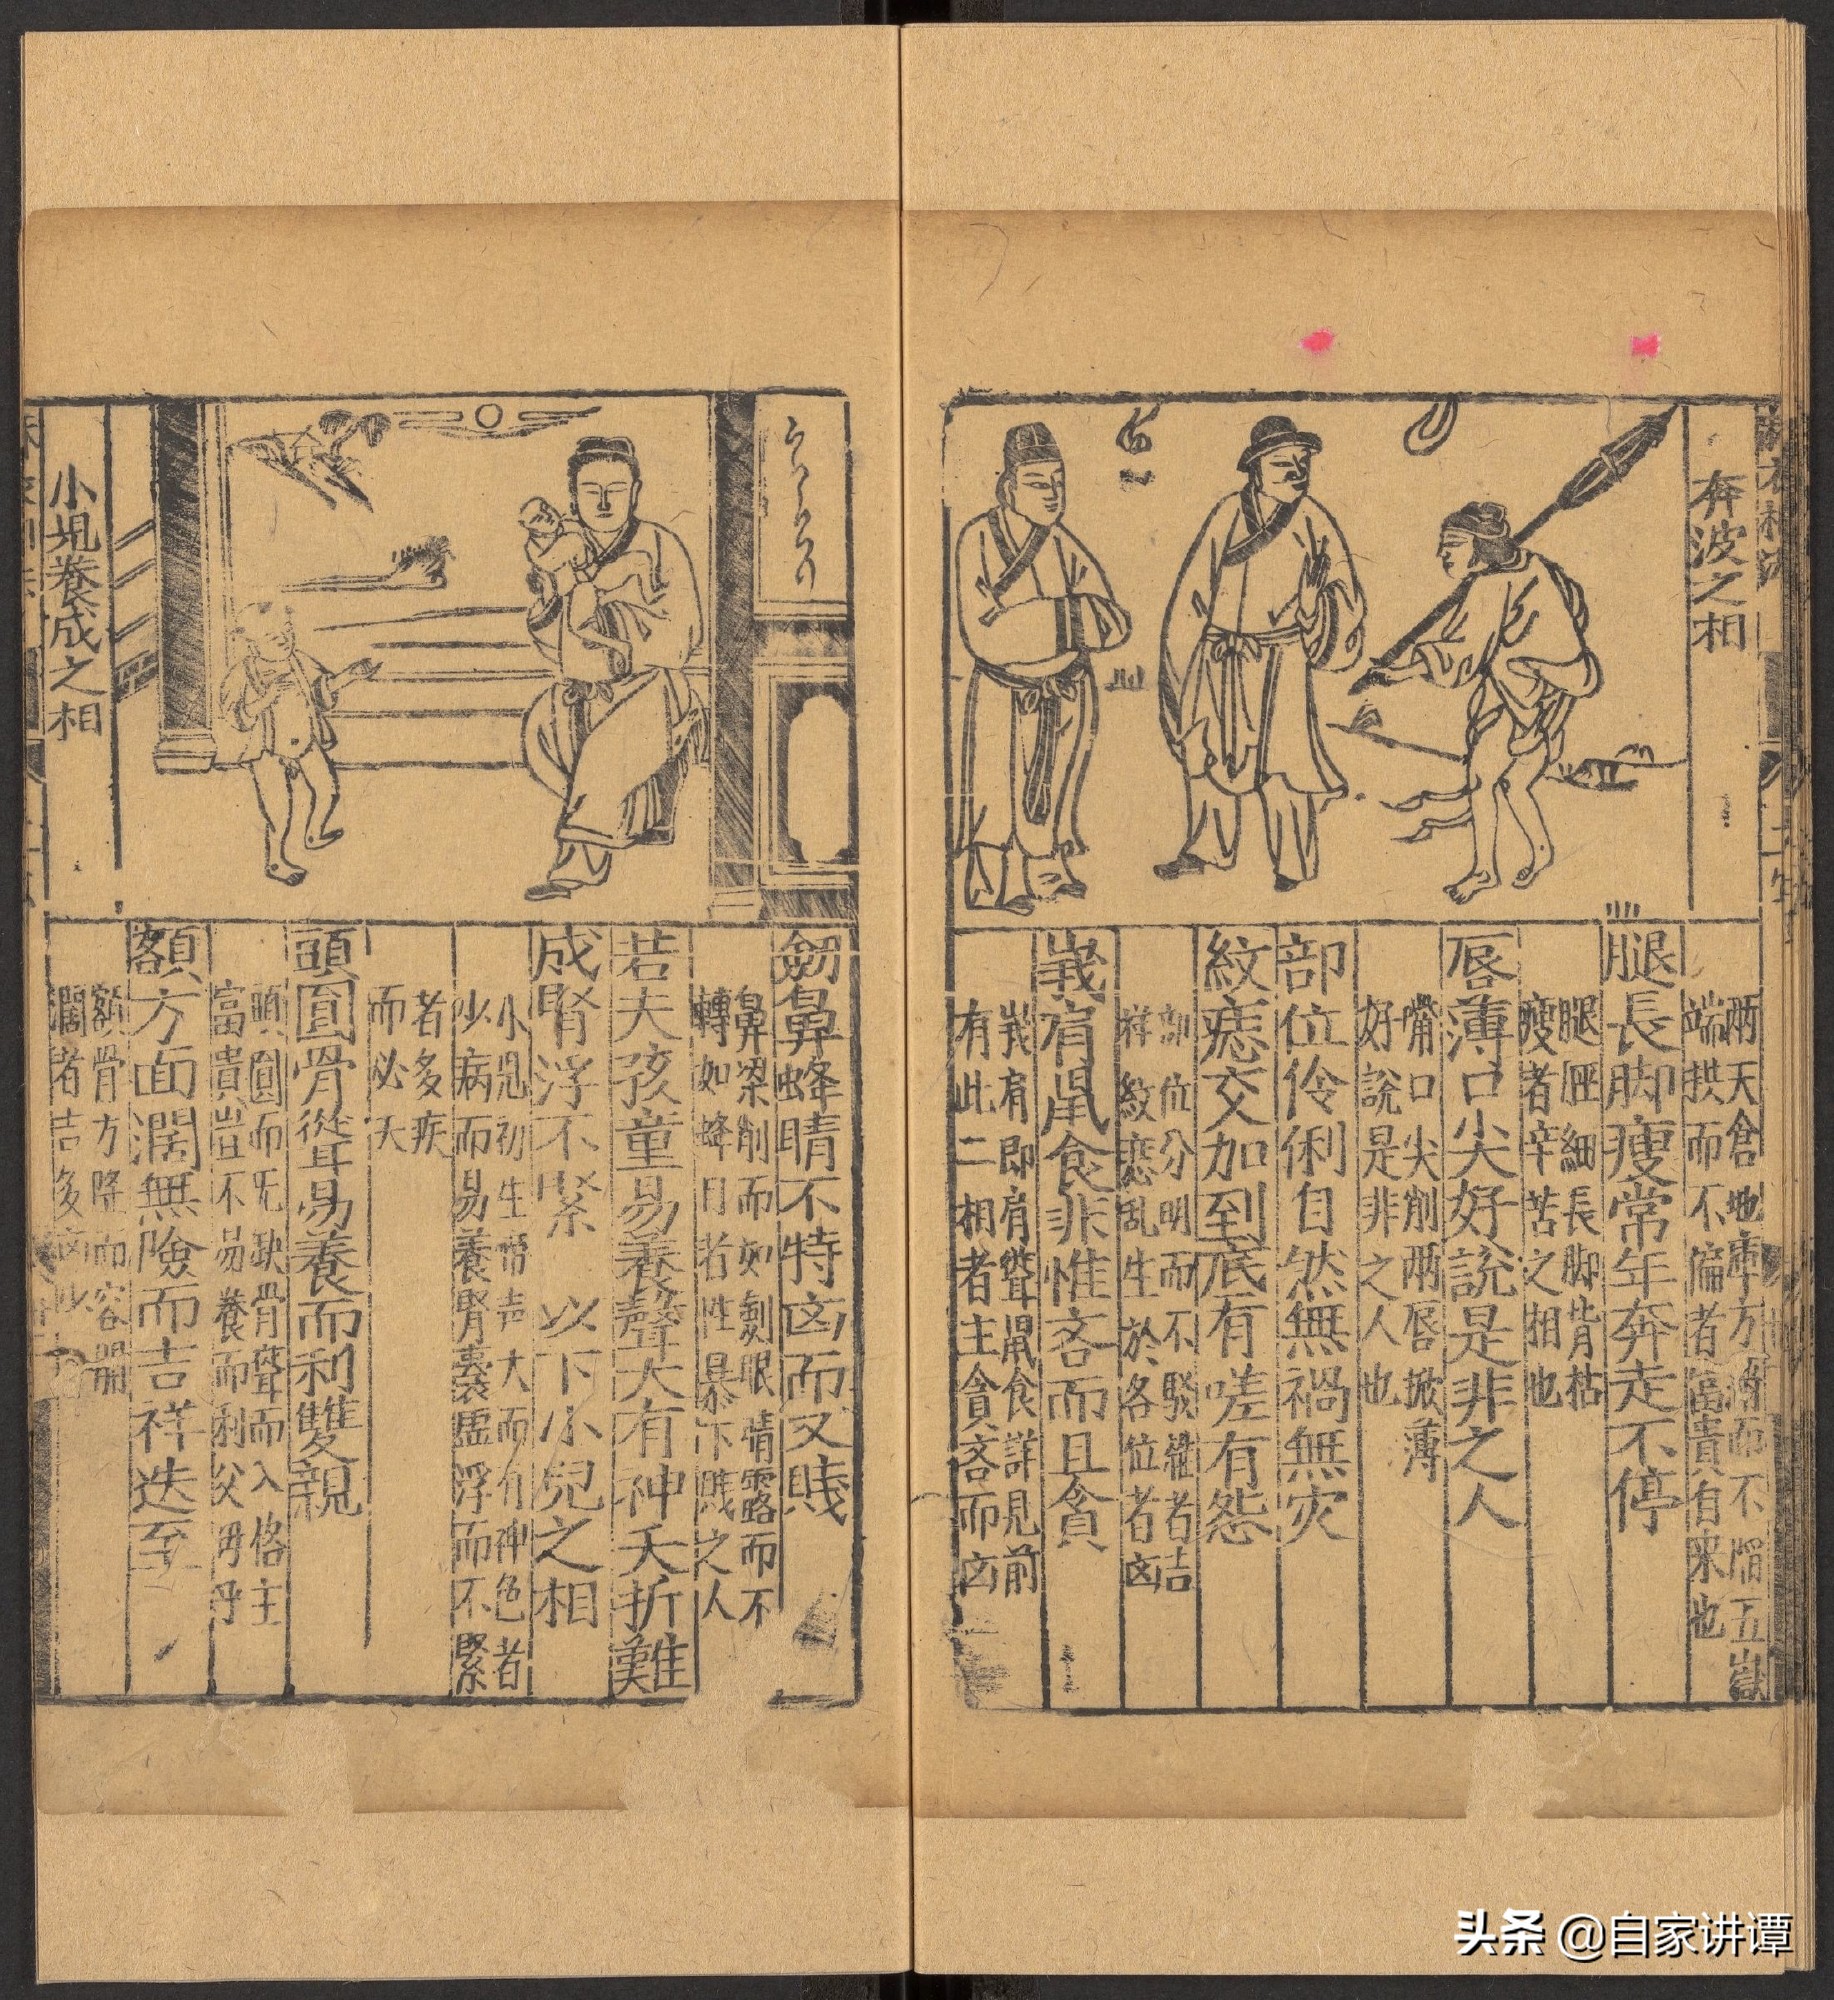 奔波之相
兩天倉地庫方滿而不陷五嶽
端拱而不偏者富貴自來也
腿長脚瘦常年奔走不停
腿脛細長脚背枯
瘦者辛苦之相也
唇薄口尖好說是非之人
嘴口尖削兩唇掀薄
好說是非之人也
部位伶俐自然無禍無灾
紋痣交加到底有嗟有怨
部位分明而不駁雜者吉
紋痣乱生於各位者凶
峩肩鼠食非惟吝而且貪
峩肩即肩聳鼠食詳見前
有此二相者主貪吝而凶
劒鼻蜂睛不特凶而又賤
鼻梁削而如劍眼睛露而不
轉如蜂目者性暴下賤之人
若夫孩童易養聲大有神夭折難
成腎浮不緊 以下小兒之相
小兒初生啼声大而有神色者
少病而易養腎囊虛浮而不緊
者多疾
而必夭
頭圓骨聳易養而利雙親
頭圓而无缺骨聳而入格主
富貴豈不易養而利父母乎
額方面濶無險而吉祥迭至
額骨方隆而容
濶者吉多凶少
小兒養成之相
头条 @自家讲谭